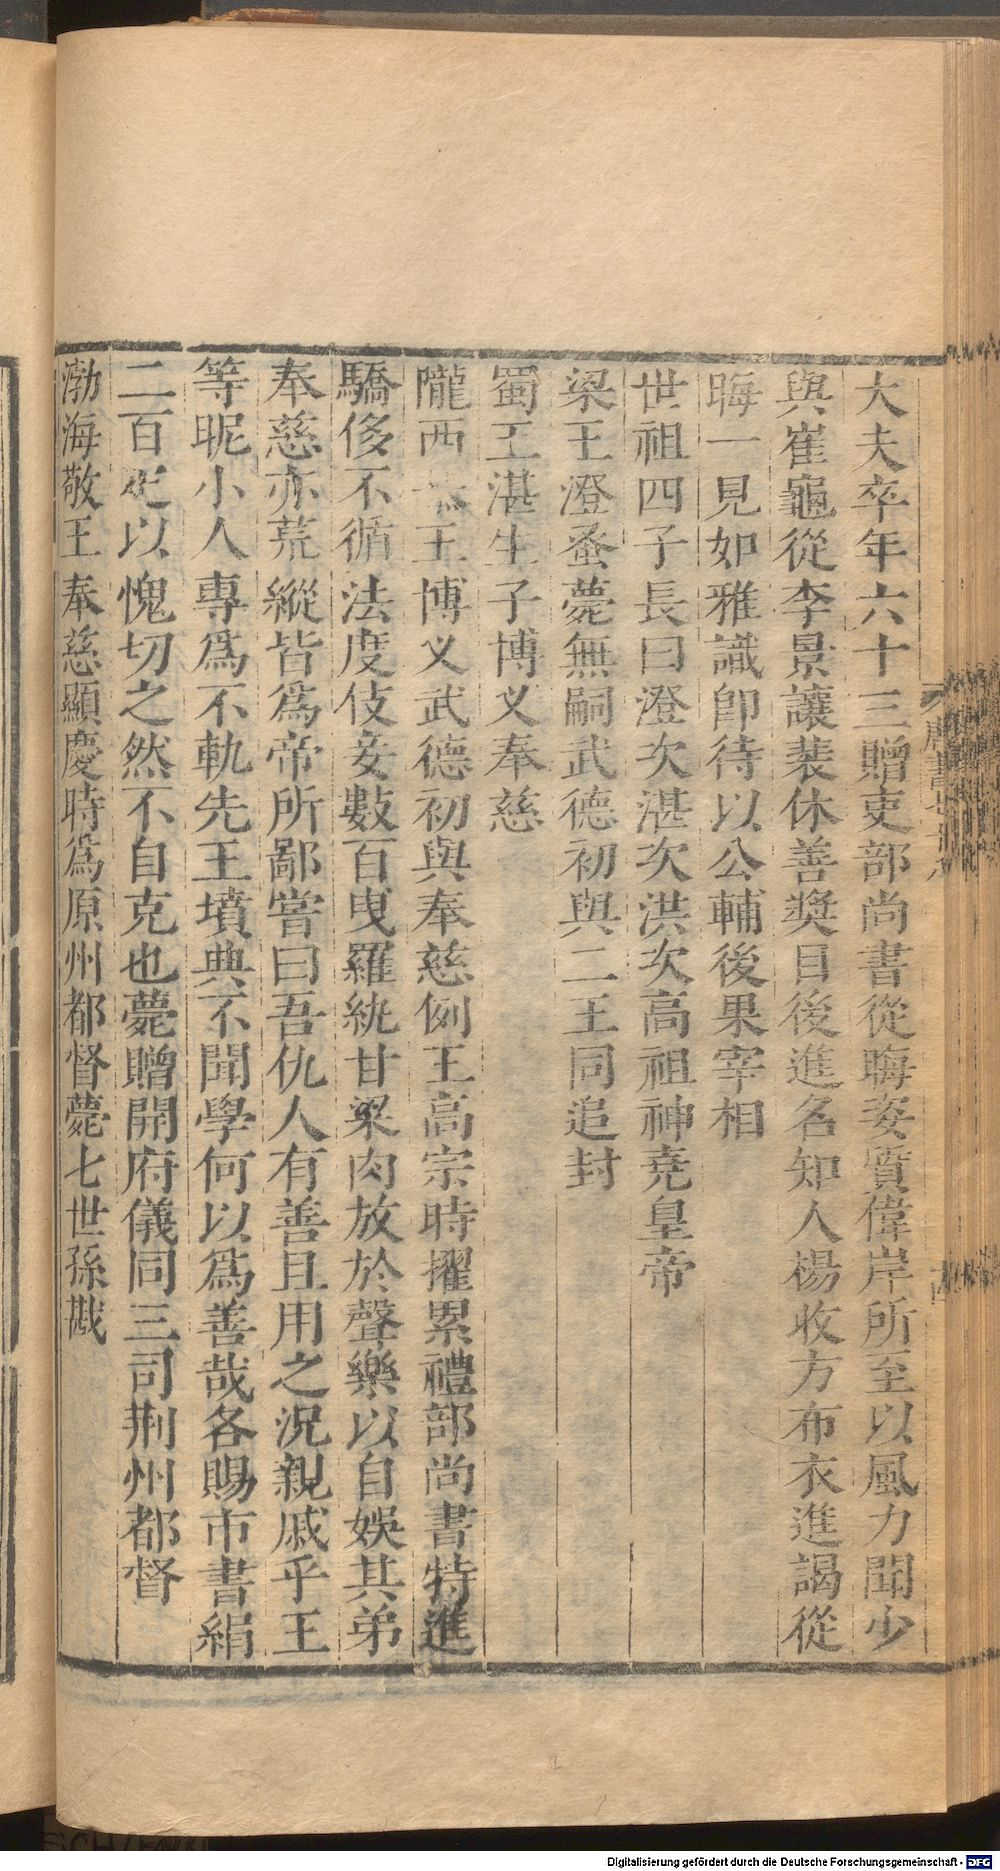 大夫卒年六十三贈吏部尚書從晦姿質偉岸所至以風力聞少
與崔龜從李景讓裴休善奬目後進名知人楊收方布衣進謁從
晦一見如雅識卽待以公輔後果宰相
世祖四子長曰澄次湛次洪次高祖神堯皇帝
梁王澄蚤薨無嗣武德初與二王同追封
蜀王湛生子博义奉慈
隴西王博义武德初與奉慈例王高宗時擢累禮部尚書特進
驕侈不循法度伎妾數百曳羅紈甘粱肉放於聲樂以自娛其弟
奉慈亦荒縱皆爲帝所鄙嘗曰吾仇人有善且用之況親戚乎王
等昵小人專爲不軌先王墳典不聞學何以爲善哉各賜市書絹
二百疋以愧切之然不自克也薨贈開府儀同三司荆州都督
渤海敬王奉慈顯慶時爲原州都督薨七世孫戡
Digitalisierung gefördert durch die Deutsche Forschungsgemeinschaft - DFG